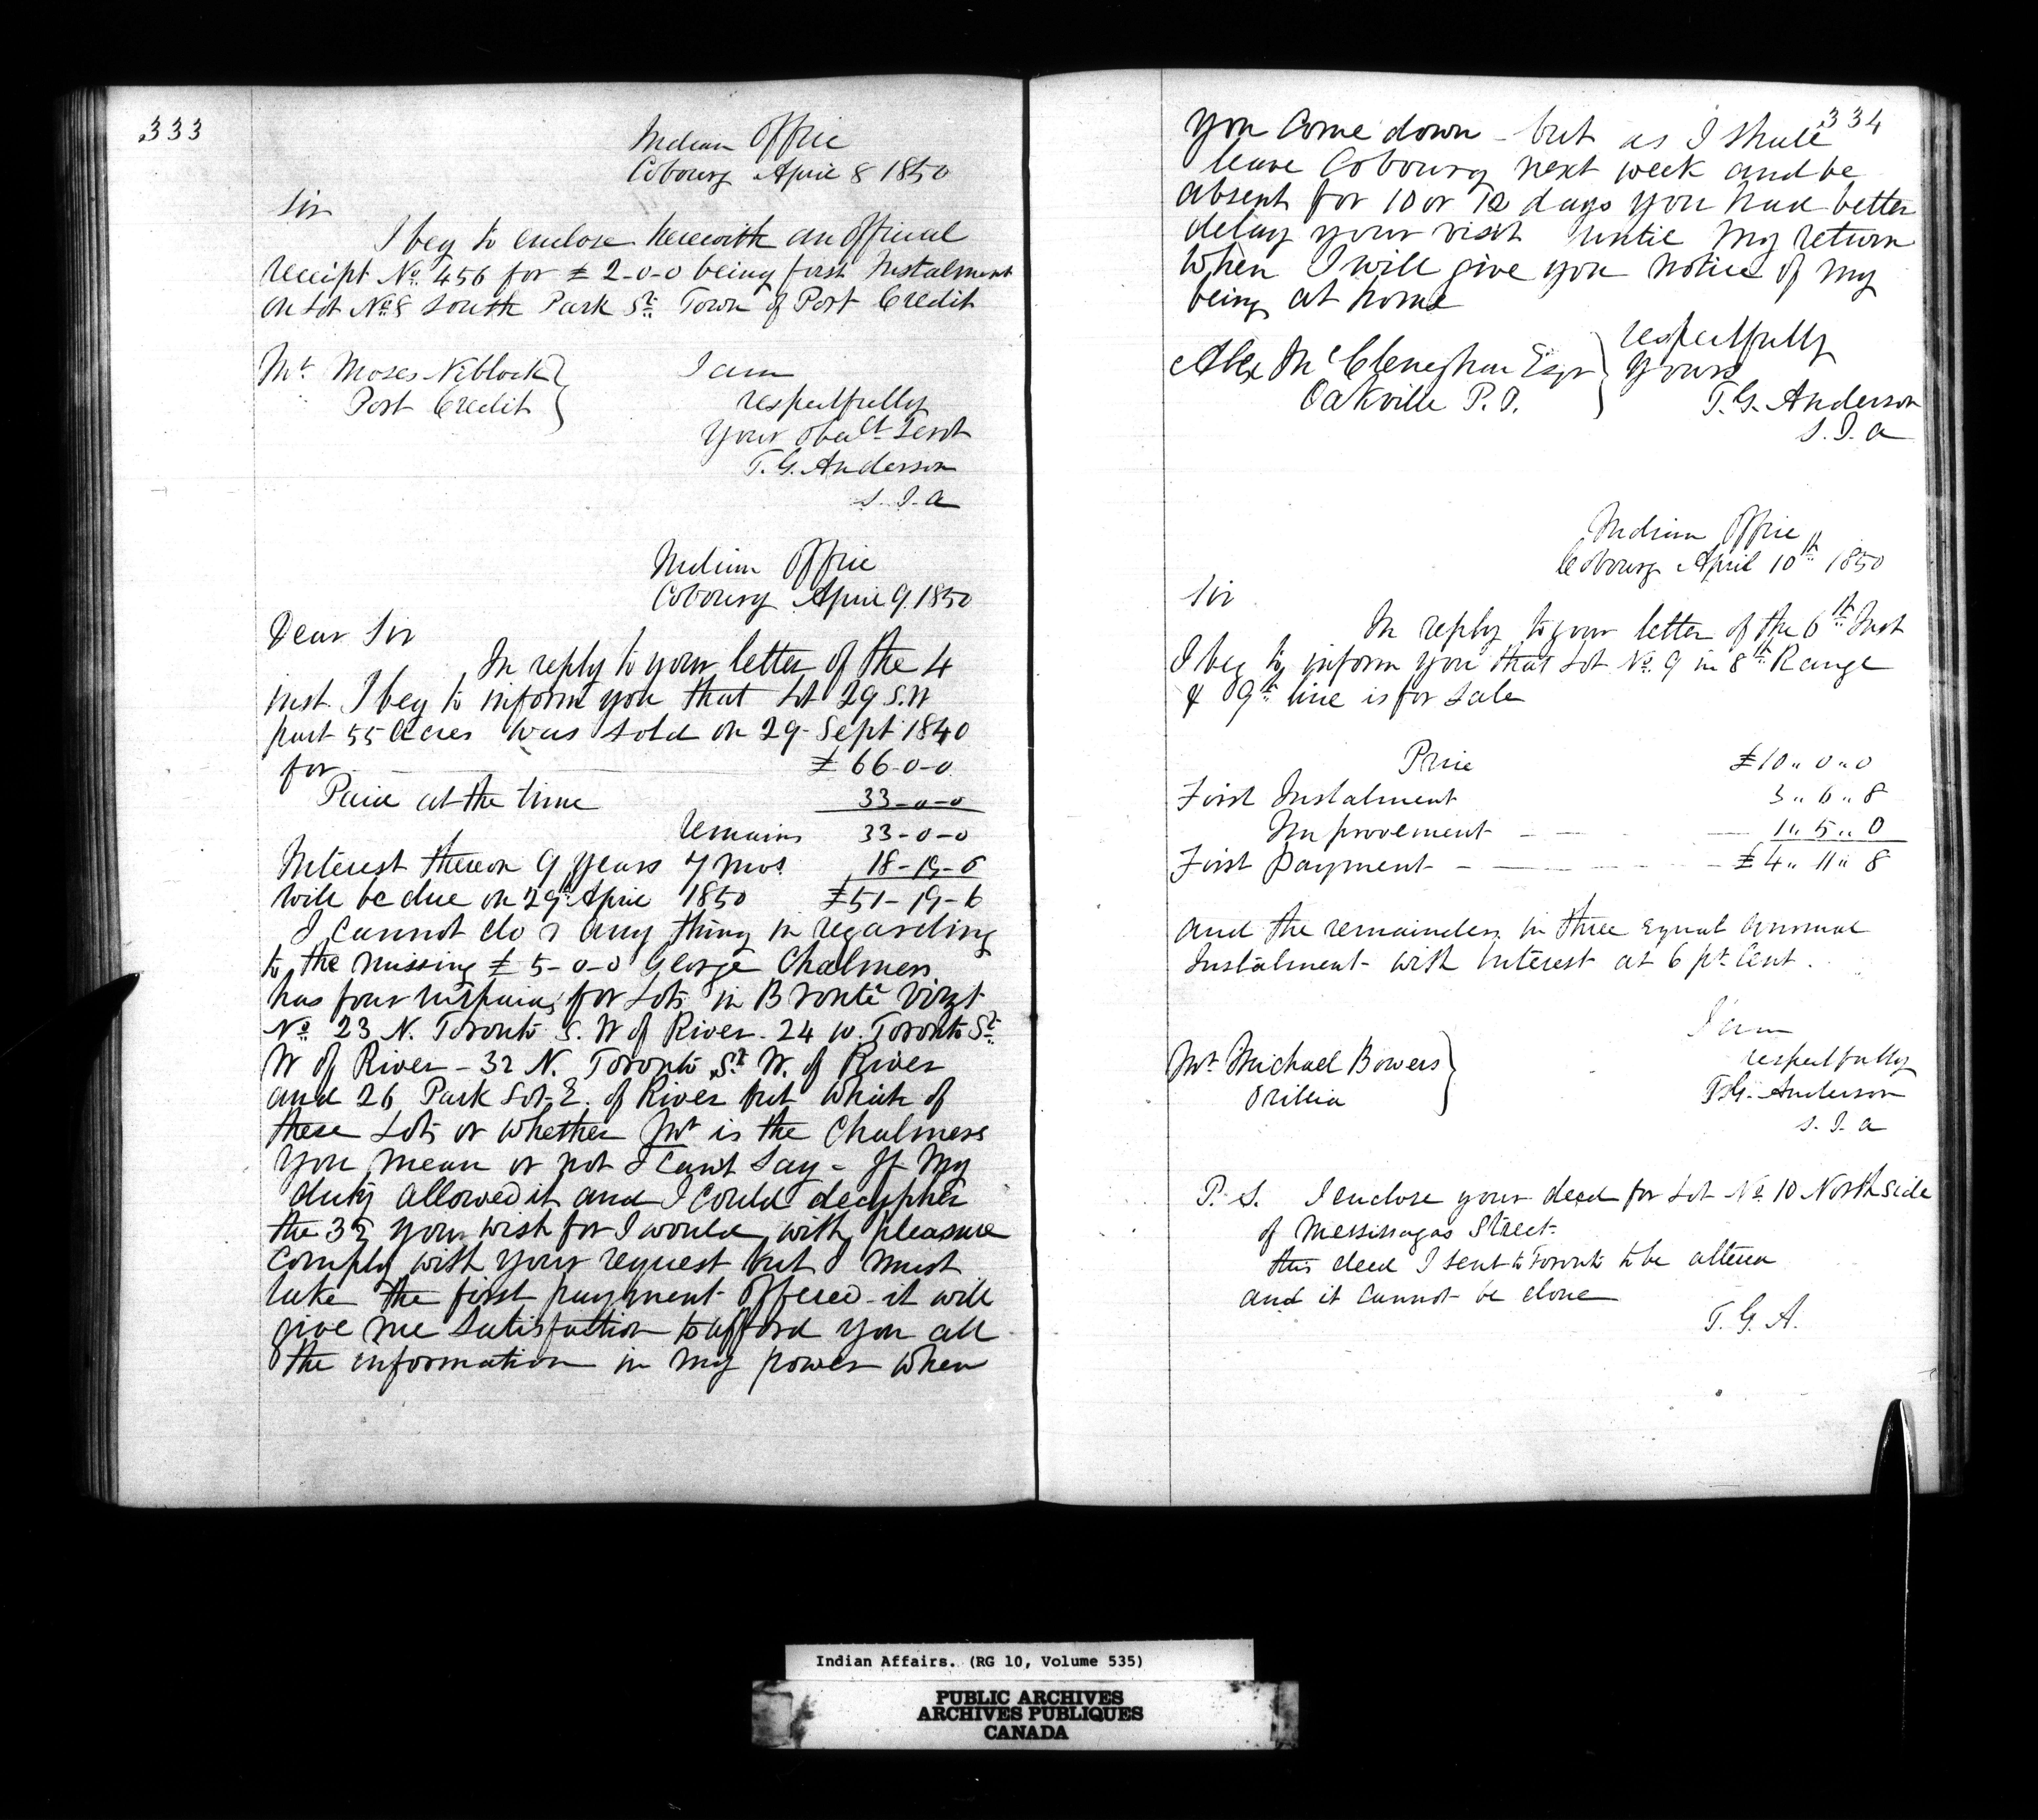 333
Indian Office
Cobourg April 8 1850
Sir
I beg to enclose herewith an official
receipt No. 456 for £ 2-0-0 being first Instalment
on Lot No. 8 South Park St. Town of Port Credit
I am
respectfully
Your obedt Servt
T. G. Anderson
S. I. A
Mr. Moses Niblock
Port Credit
Indian Office
Cobourg April 9. 1850
Dear Sir
In reply to your letter of the 4
inst. I beg to inform you that Lot 29 S.W
part 55 Acres was sold on 29 Sept 1840
for £ 66-0-0
Paid at the time 33-0-0
remains 33-0-0
Interest thereon 9 years 7 mos. 18-19-6
will be due on 29th April 1850 £51-19-6
I cannot do any thing in regarding
to the missing £ 5-0-0 George Chalmers
has four for Lots in Bronté vizt
No. 23 N. Toronto S. W of River. 24 W. Toronto St.
W of River - 32 N. Toronto St. W. of River
and 26 Park Lot E. of River but which of
these Lots or whether is the Chalmers
you mean or not I can't say - If my
duty allowed it and I could decypher
the 35 you wish for I would with pleasure
comply with your request but I must
take the first payment offered - it will
give me satisfaction to afford you all
the information in my power when
334
you come down - but as I shall
leave Cobourg next week and be
absent for 10 or 12 days you had better
delay your visit until my return
when I will give you notice of my
being at home
respectfully
Yours
T. G. Anderson
S. I. A
Alex McClenghan Esqr
Oakville P. O.
Indian Office
Cobourg April 10th 1850
Sir
In reply to your letter of the 6th Inst
I beg to inform you that Lot No. 9 in 8th Range
& 9th line is for Sale
Price £10 „ 0 „ 0
First Instalment 3 „ 6 „ 8
Improvement - - 1 „ 5 „ 0
First Payment - - £ 4 „ 11 „ 8
and the remainder in three equal annual
Instalment with Interest at 6 pr Cent.
I am
respectfully
T. G. Anderson
S. I. A
Mr. Michael Bowers
Orillia
P. S. I enclose your deed for Lot No. 10 North side
of Messissagas Street.
this deed I sent to Toronto to be altered
and it cannot be done
T. G. A.
Indian Affairs. (RG 10, Volume 535)
PUBLIC ARCHIVES
ARCHIVES PUBLIQUES
CANADA